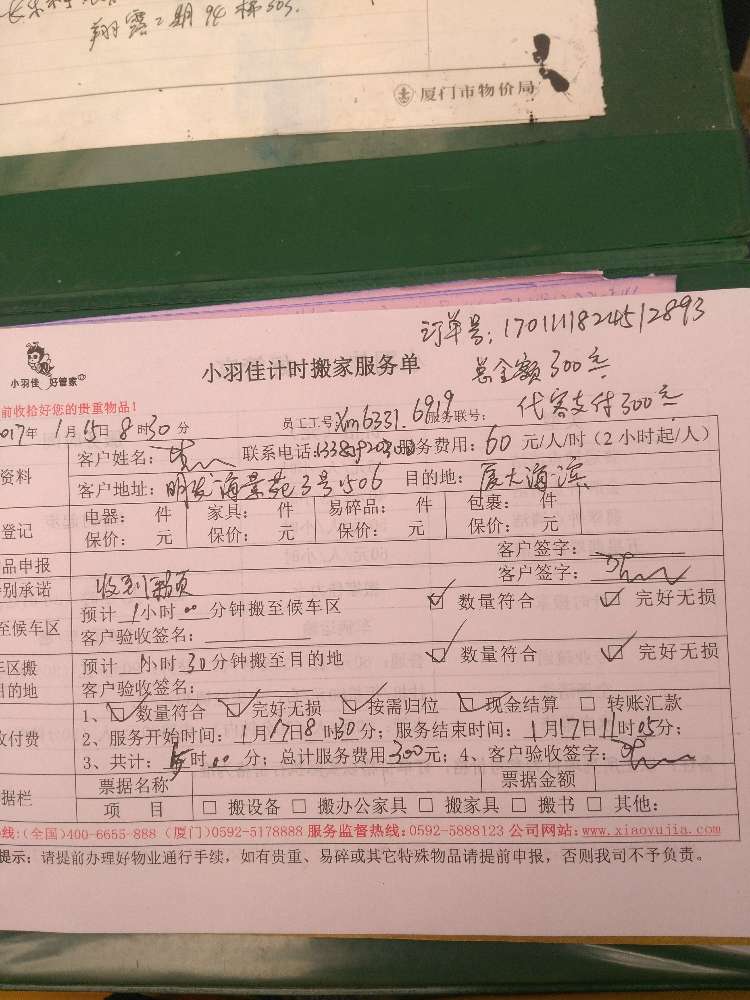 翔露二期94栋503.
厦门市物价局
订单号:1701111824512893
小羽佳 好管家
小羽佳计时搬家服务单
总金额300元
代客支付300元
前收拾好您的贵重物品!
2017年1月15日8时30分
员工工号:Xm6331.6919
服务联号:
资料
客户姓名:
联系电话:
服务费用:60元/人/时(2小时起/人)
客户地址:明发海景苑3号1506
目的地:厦大海滨
登记
电器: 件 家具: 件 易碎品: 件 包裹: 件
保价: 元 保价: 元 保价: 元 保价: 元
品申报
客户签字:
别承诺
客户签字:
至候车区
预计1小时00分钟搬至候车区 ☑ 数量符合 ☑ 完好无损
客户验收签名:
车区搬
目的地
预计1小时30分钟搬至目的地 ☑ 数量符合 ☑ 完好无损
客户验收签名:
收付费
1、☑数量符合 ☑完好无损 ☑按需归位 ☑现金结算 □ 转账汇款
2、服务开始时间:1月17日8时30分;服务结束时间:1月17日11时05分;
3、共计:5时00分;总计服务费用300元;4、客户验收签字:
据栏
票据名称
票据金额
项 目 □ 搬设备 □ 搬办公家具 □ 搬家具 □ 搬书 □ 其他:
线:(全国)400-6655-888 (厦门)0592-5178888 服务监督热线:0592-5888123 公司网站:www.xiaoyujia.com
提示:请提前办理好物业通行手续,如有贵重、易碎或其它特殊物品请提前申报,否则我司不予负责。